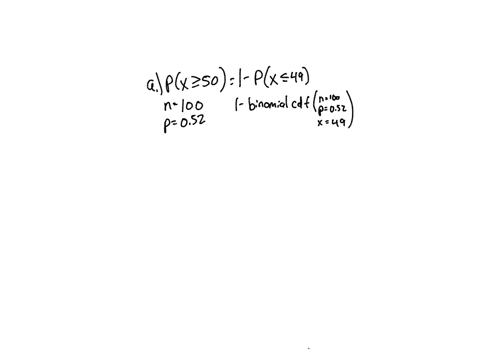 a.) P(x≥50)=1-P(x≤49)
n=100 1-binomial cdf (n=100
p=0.52
x=49)
p=0.52